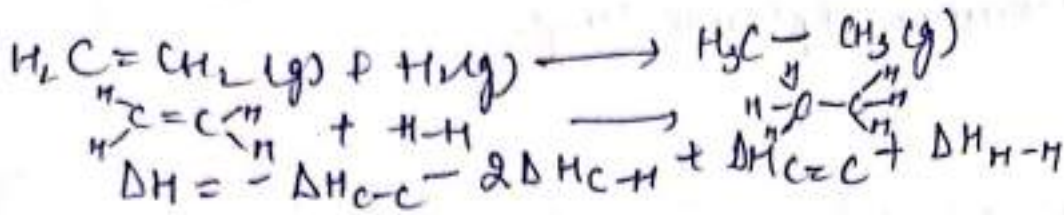 H₂C=CH₂(g) + H₂(g) → H₃C-CH₃(g)
H H C=C H H + H-H → H H-C-C H H H H
ΔH = -ΔH_C-C - 2ΔH_C-H + ΔH_C=C + ΔH_H-H